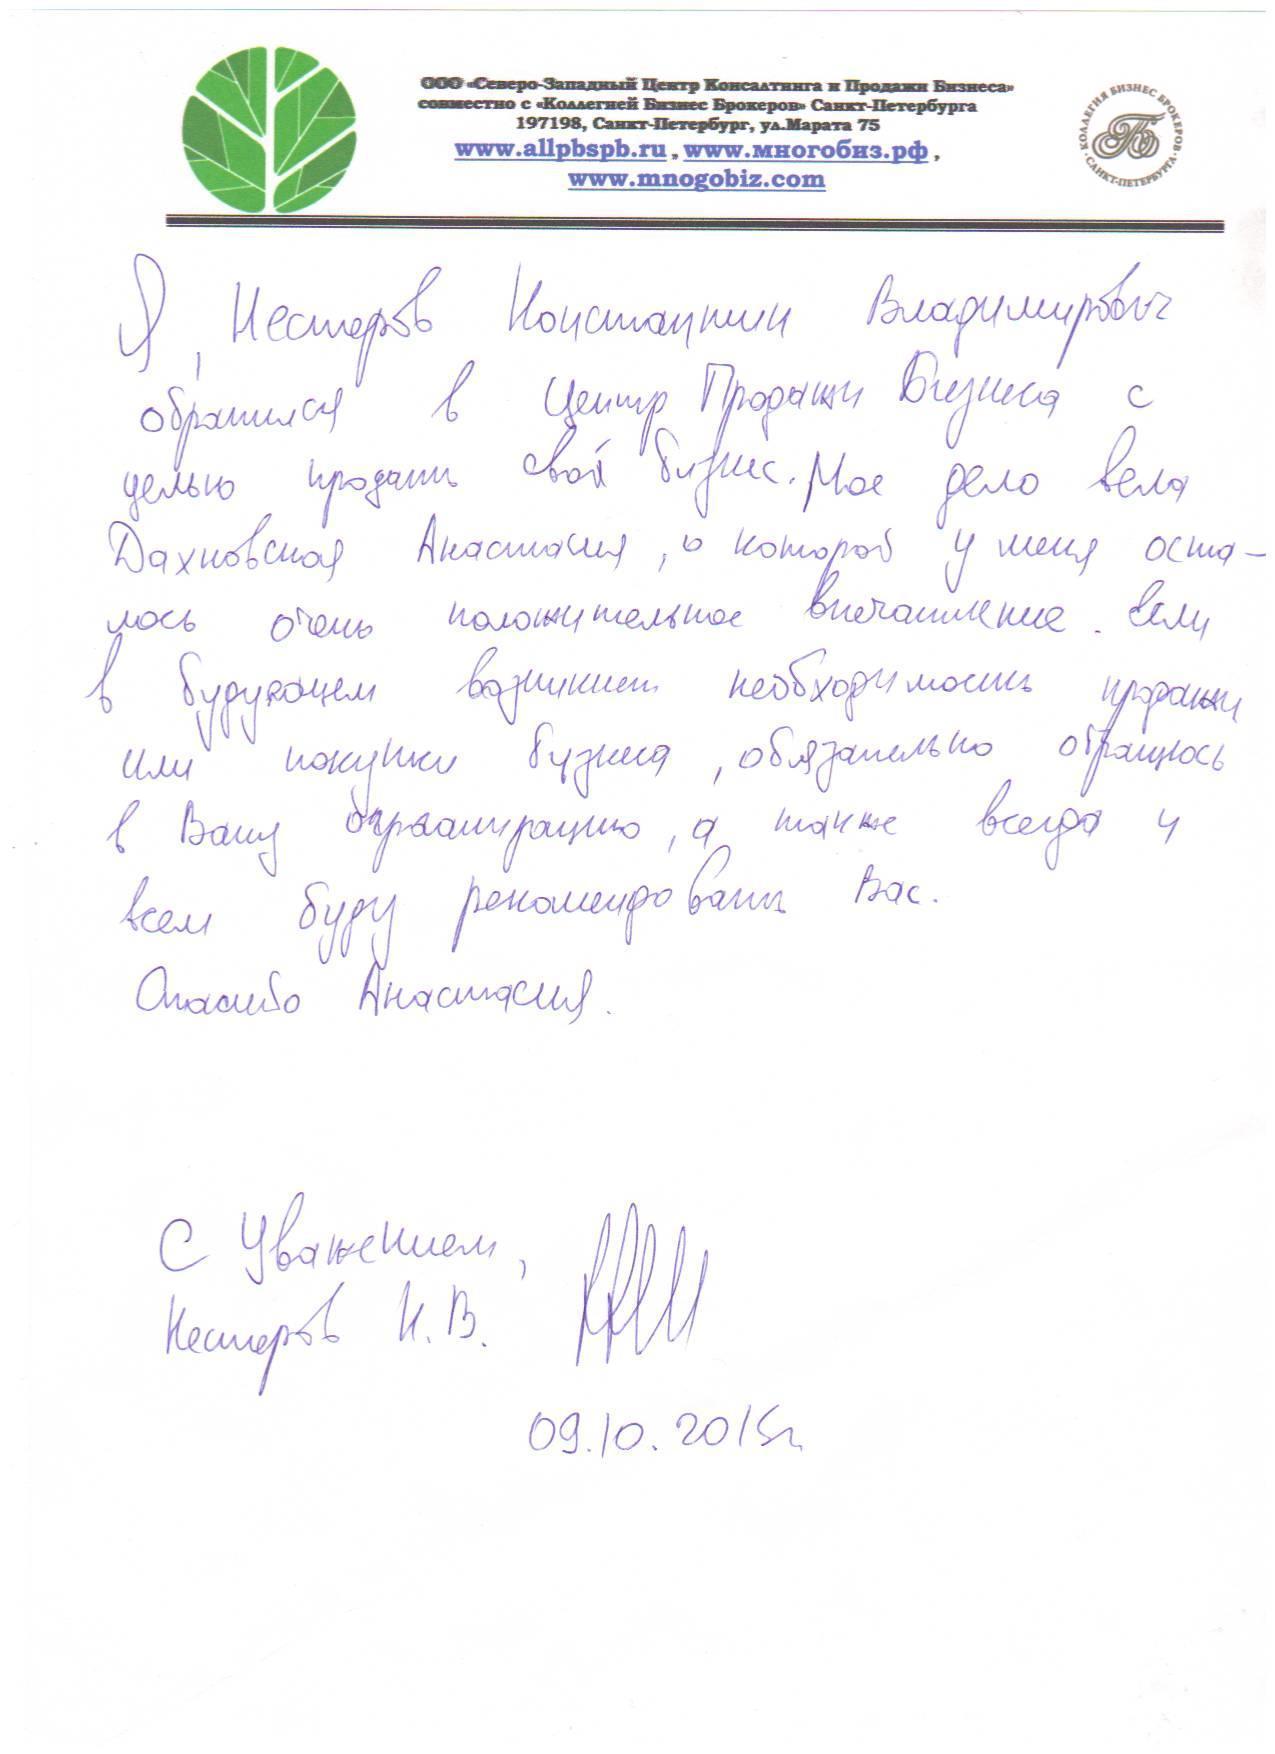 ООО «Северо-Западный Центр Консалтинга и Продажи Бизнеса»
совместно с «Коллегией Бизнес Брокеров» Санкт-Петербурга
197198, Санкт-Петербург, ул.Марата 75
www.allpbspb.ru , www.многобиз.рф ,
www.mnogobiz.com
КОЛЛЕГИЯ БИЗНЕС БРОКЕРОВ
САНКТ-ПЕТЕРБУРГА
Я, Нестеров Константин Владимирович
обратился в Центр Продажи Бизнеса с
целью продать свой бизнес. Мое дело вела
Дахновская Анастасия, о которой у меня оста-
лось очень положительное впечатление. Если
в будующем возникнет необходимость продажи
или покупки бизнеса, обязательно обращюсь
в Вашу организацию, а также всегда и
всем буду рекомендовать Вас.
Спасибо Анастасия.
С Уважением,
Нестеров К.В.
09.10.2015г